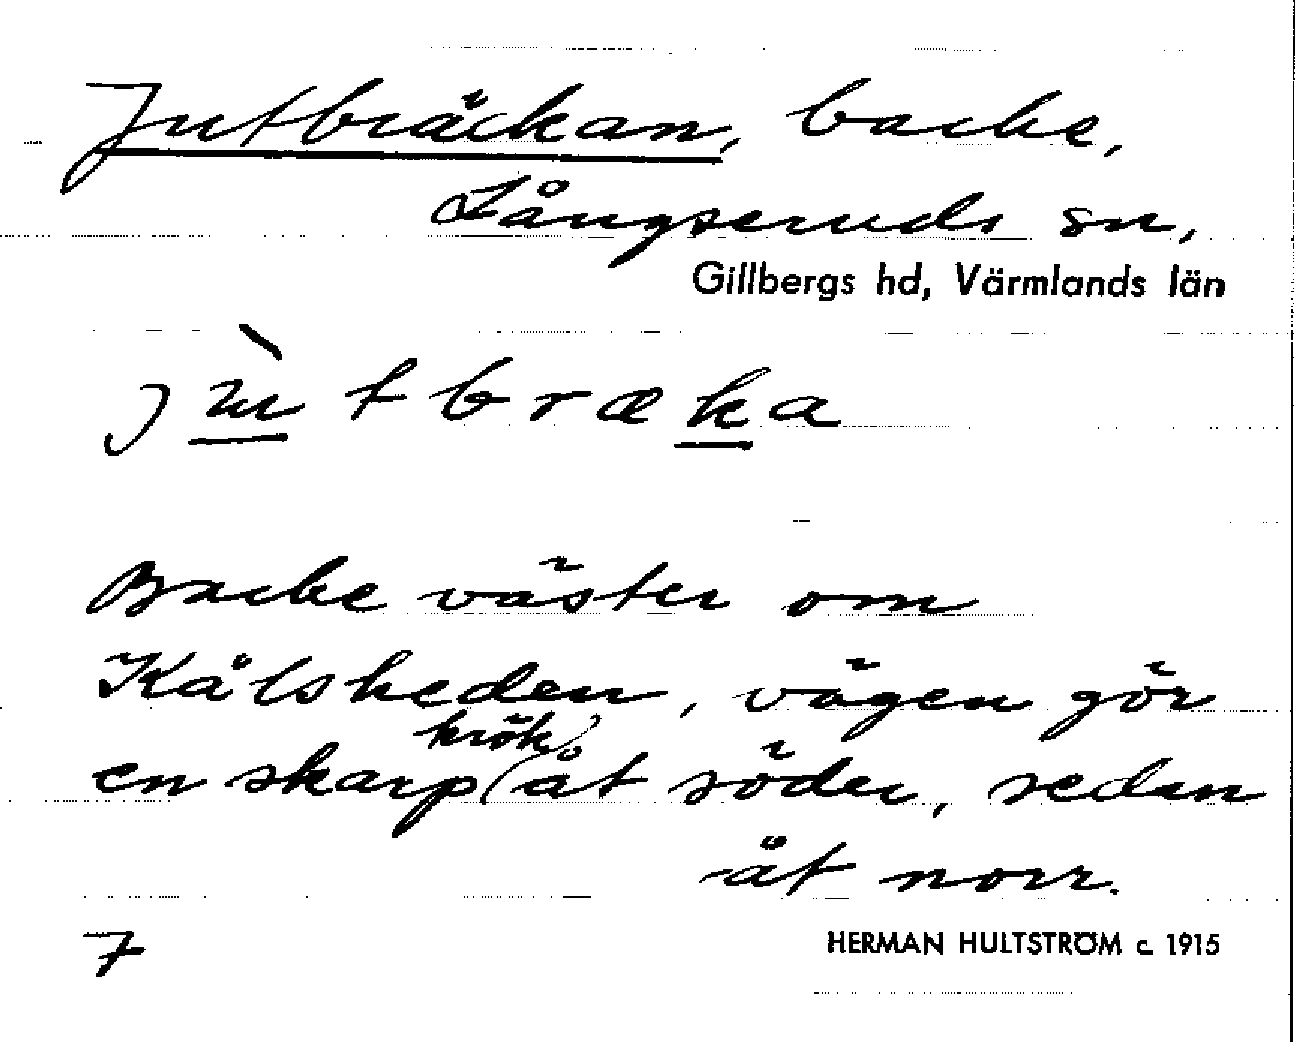 Jutbräckan, backe,
Långseruds sn,
Gillbergs hd, Värmlands län
jùtbræka
Backe väster om
Kålsheden, vägen gör
en skarp krök åt söder, sedan
åt norr.
7
HERMAN HULTSTRÖM c. 1915